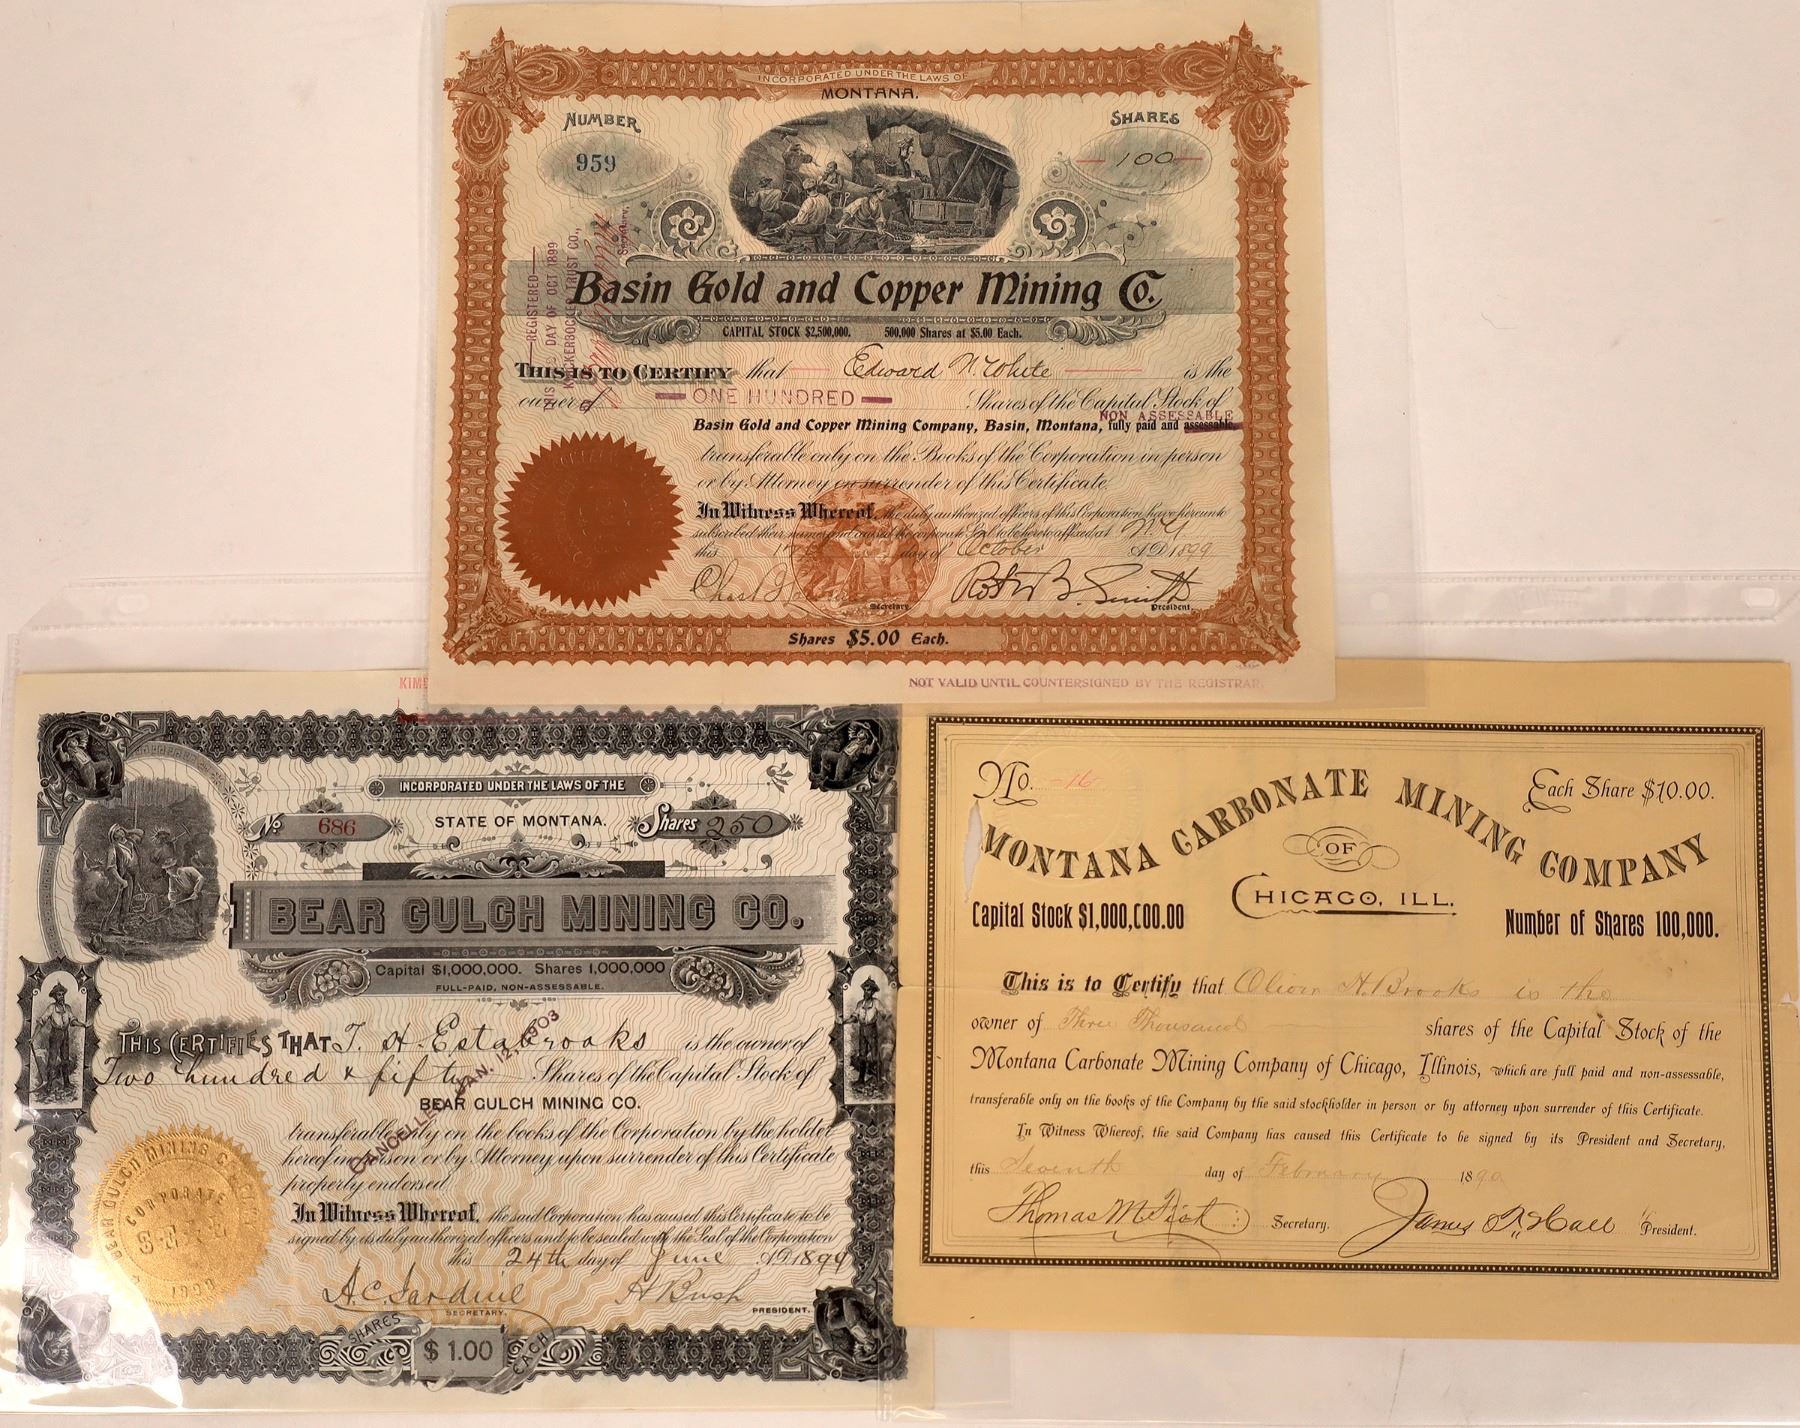 INCORPORATED UNDER THE LAWS OF
MONTANA.
NUMBER
959
SHARES
100
REGISTERED
DAY OF OCT 1899
KNICKERBOCKER TRUST CO.,
Secretary.
Basin Gold and Copper Mining Co.
CAPITAL STOCK $2,500,000. 500,000 Shares at $5.00 Each.
THIS IS TO CERTIFY that Edward N. White is the
owner of ONE HUNDRED Shares of the Capital Stock of
NON ASSESSABLE
Basin Gold and Copper Mining Company, Basin, Montana, fully paid and assessable,
transferable only on the Books of the Corporation in person
or by Attorney on surrender of this Certificate.
In Witness Whereof, the duly authorized officers of this Corporation have hereunto
subscribed their names and caused the corporate Seal to be hereto affixed at N.Y
this day of October A.D. 1899
Secretary.
Robt B. Smith
President.
Shares $5.00 Each.
NOT VALID UNTIL COUNTERSIGNED BY THE REGISTRAR.
KIM
INCORPORATED UNDER THE LAWS OF THE
STATE OF MONTANA.
No 686
Shares 250
BEAR GULCH MINING CO.
Capital $1,000,000. Shares 1,000,000
FULL-PAID, NON-ASSESSABLE.
THIS CERTIFIES THAT T. H. Estabrooks is the owner of
Two hundred & fifty Shares of the Capital Stock of
BEAR GULCH MINING CO.
transferable only on the books of the Corporation by the holder
hereof in person or by Attorney upon surrender of this Certificate
properly endorsed.
CANCELLED JAN. 12, 1903
In Witness Whereof, the said Corporation has caused this Certificate to be
signed by its duly authorized officers and to be sealed with the Seal of the Corporation
this 24th day of June A.D. 1899
A.C. Sardine
SECRETARY.
H Bush
PRESIDENT.
BEAR GULCH MINING
CORPORATE
SEAL
SHARES $1.00 EACH
No. 16
Each Share $10.00.
MONTANA CARBONATE MINING COMPANY
OF
CHICAGO, ILL.
Capital Stock $1,000,000.00
Number of Shares 100,000.
This is to Certify that Oliver H. Brooks is the
owner of Three Thousand shares of the Capital Stock of the
Montana Carbonate Mining Company of Chicago, Illinois, which are full paid and non-assessable,
transferable only on the books of the Company by the said stockholder in person or by attorney upon surrender of this Certificate.
In Witness Whereof, the said Company has caused this Certificate to be signed by its President and Secretary,
this Seventh day of February 1890
Thomas Secretary.
James Hall President.